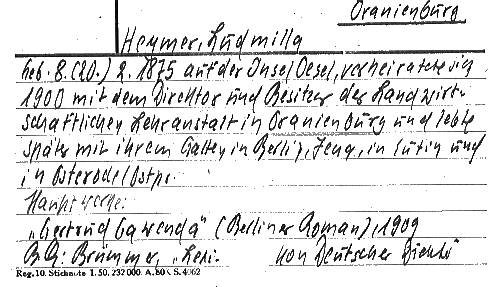 Oranienburg
Heymer, Ludmilla
geb. 8. (20.) 2. 1875 auf der Insel Oesel, verheiratete sich
1900 mit dem Direktor und Besitzer der Landwirt-
schaftlichen Lehranstalt in Oranienburg und lebte
später mit ihrem Gatten in Berlin, Jena, in Eutin und
in Osterode/Ostpr.
Hauptwerke:
„Gertrud Gawenda" (Berliner Roman), 1909
Brümmer, „Lexi- von Deutscher Dichter"
Reg. 10. Stichnote 1. 50. 232000. A. 80 S. 4062